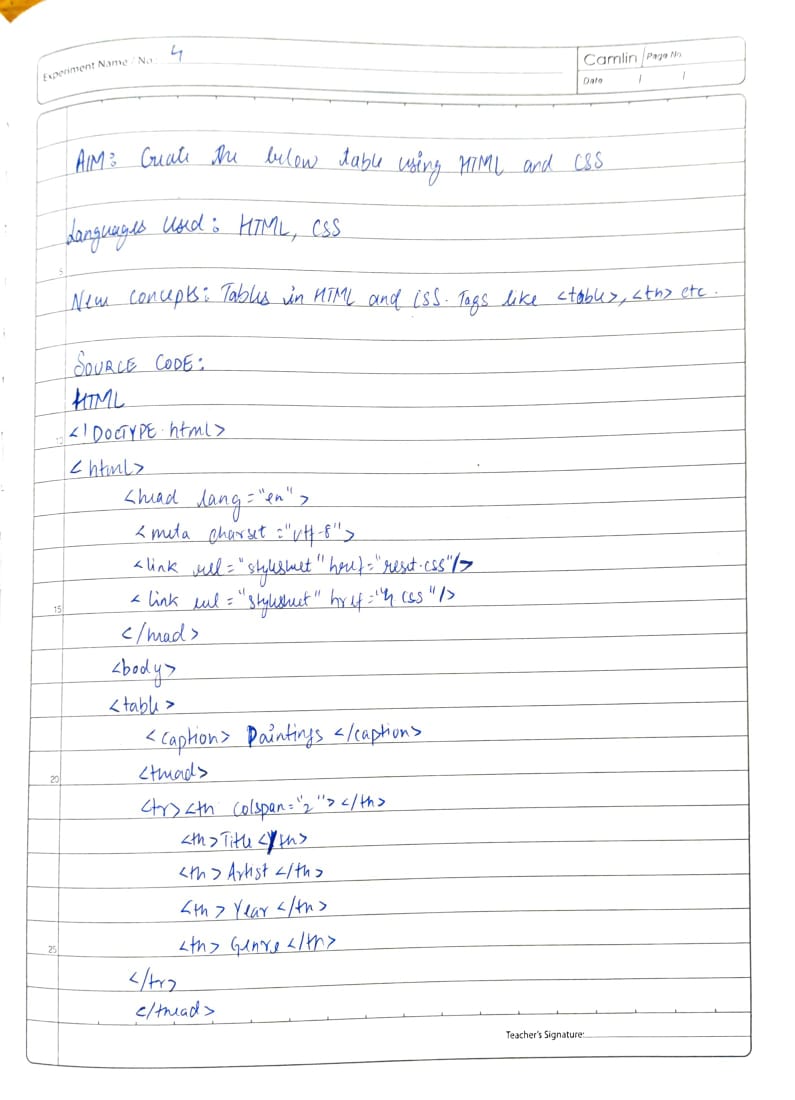 Experiment Name / No. 4
Camlin Page No.
Date / /
AIM: Create the below table using HTML and CSS
Languages Used: HTML, CSS
5
New concepts: Tables in HTML and CSS. Tags like <table>, <th> etc.
SOURCE CODE:
HTML
10 <!DOCTYPE html>
<html>
<head lang="en">
<meta charset="utf-8">
<link rel="stylesheet" href="reset.css"/>
15 <link rel="stylesheet" href="4.css"/>
</head>
<body>
<table>
<caption> Paintings </caption>
20 <thead>
<tr><th colspan="2"></th>
<th>Title</th>
<th>Artist</th>
<th>Year</th>
25 <th>Genre</th>
</tr>
</thead>
Teacher's Signature: